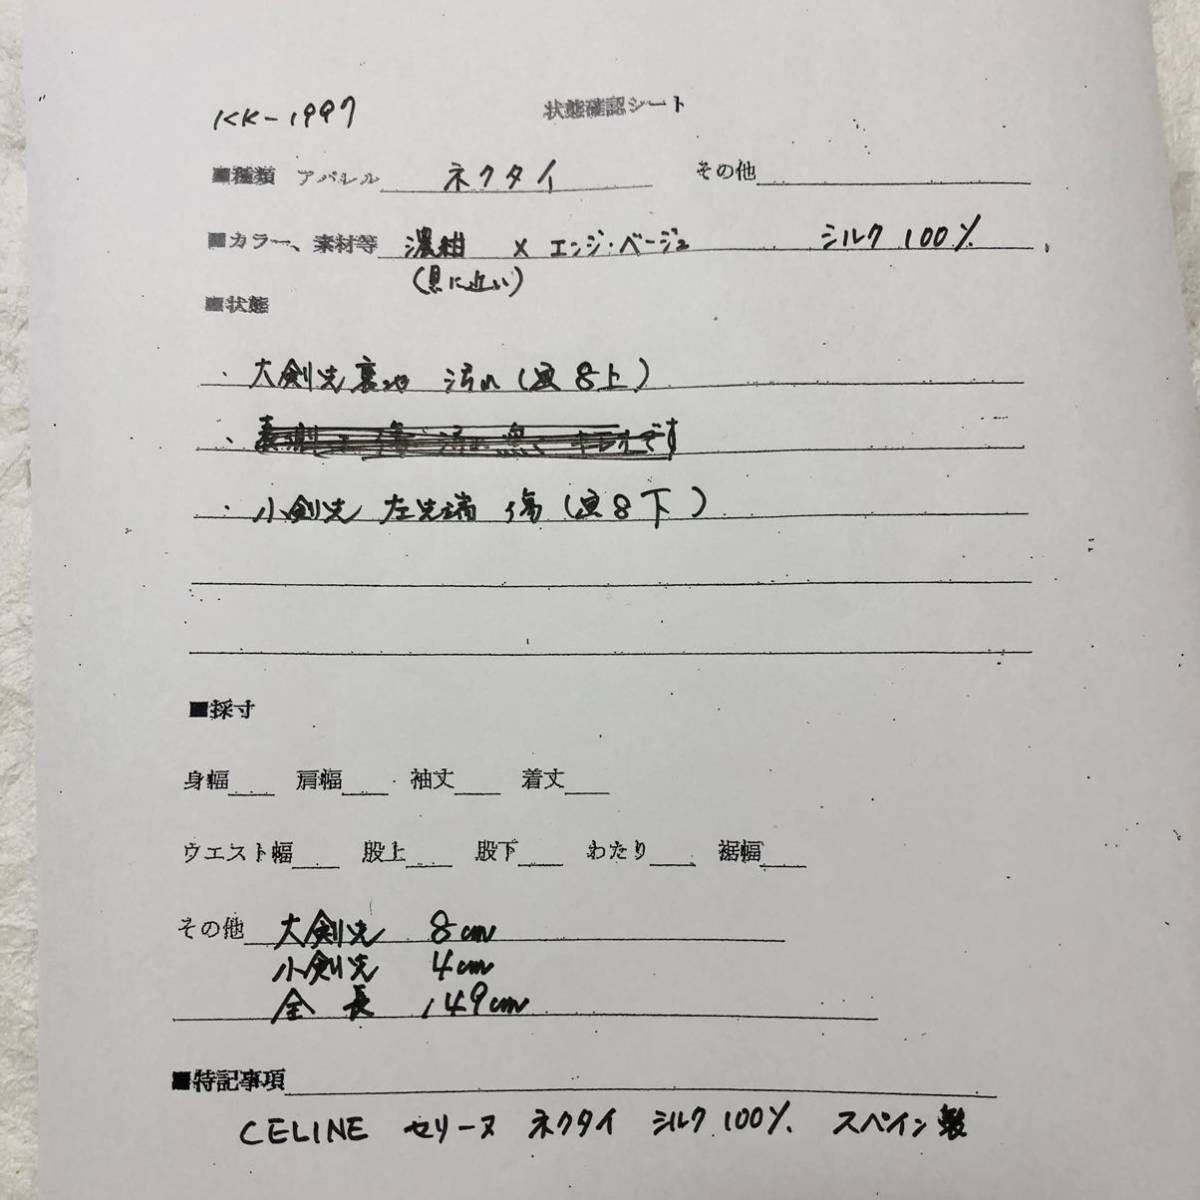 KK-1997 状態確認シート
■種類 アパレル ネクタイ その他
■カラー、素材等 濃紺 × エンジ・ベージュ シルク 100%
(黒に近い)
■状態
・大剣先裏地 汚れ(画8上)
・表側に傷 汚れ無く キレイです
・小剣先 左先端 傷(画8下)
■採寸
身幅 肩幅 袖丈 着丈
ウエスト幅 股上 股下 わたり 裾幅
その他 大剣先 8cm
小剣先 4cm
全長 149cm
■特記事項
CELINE セリーヌ ネクタイ シルク100% スペイン製